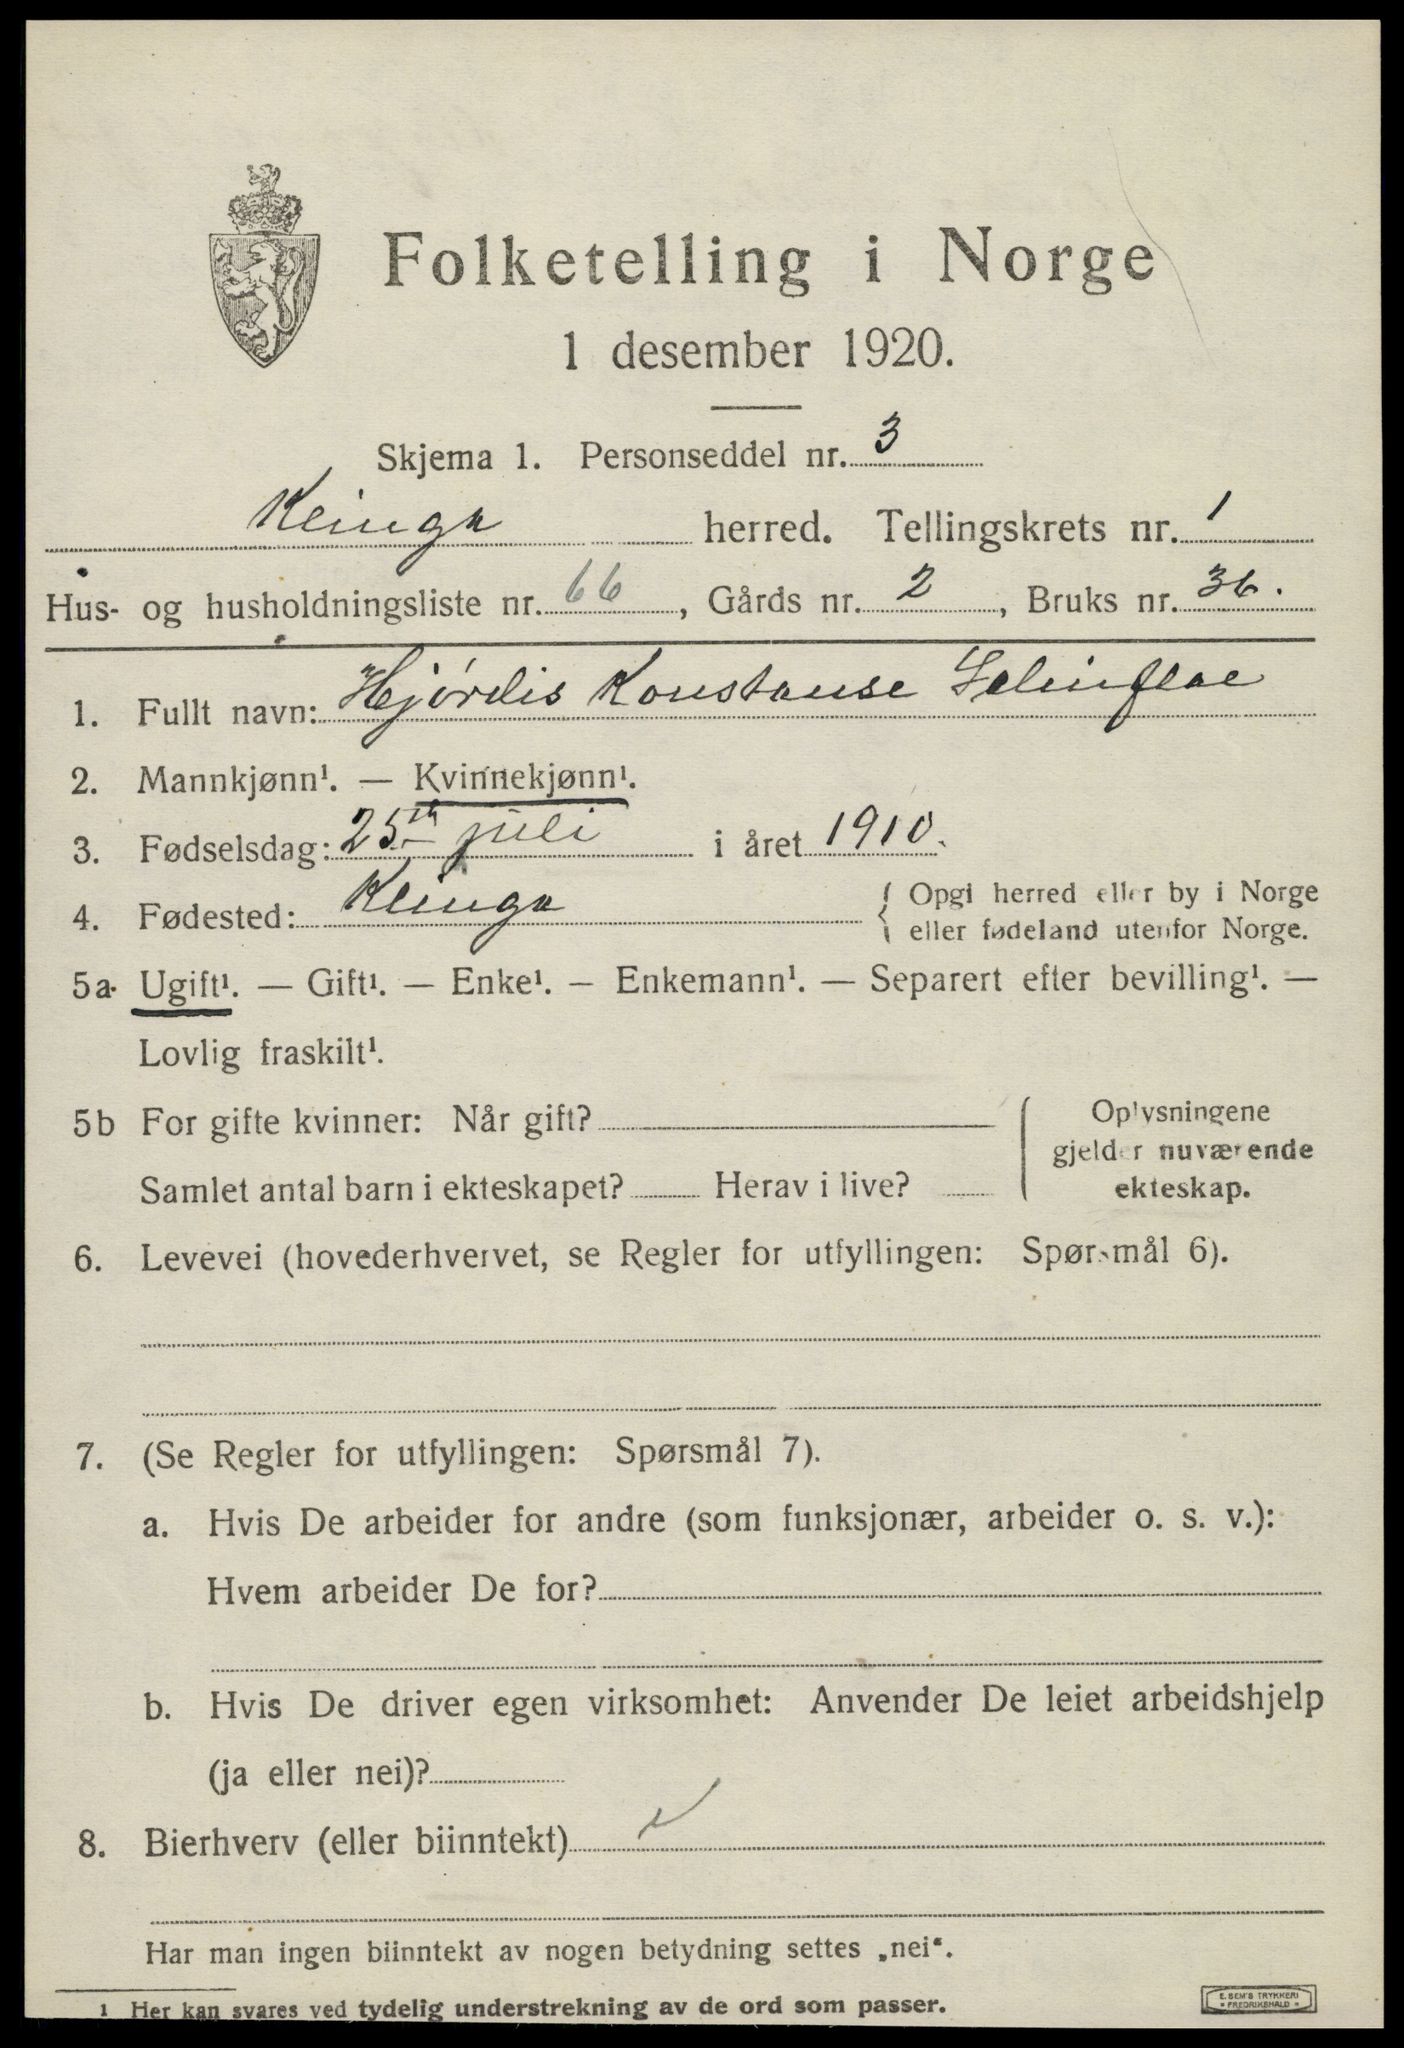 Folketelling i Norge
1 desember 1920.
Skjema 1. Personseddel nr. 3
Klinga herred. Tellingskrets nr. 1
Hus- og husholdningsliste nr. 66, Gårds nr. 2, Bruks nr. 36.
1. Fullt navn: Hjørdis Konstanse
2. Mannkjønn¹. — Kvinnekjønn¹.
3. Fødselsdag: 25th juli i året 1910.
4. Fødested: Klinga { Opgi herred eller by i Norge
eller fødeland utenfor Norge.
5a. Ugift¹. — Gift¹. — Enke¹. — Enkemann¹. — Separert efter bevilling¹. —
Lovlig fraskilt¹.
5b For gifte kvinner: Når gift?
Samlet antal barn i ekteskapet? Herav i live?
Oplysningene
gjelder nuværende
ekteskap.
6. Levevei (hovederhvervet, se Regler for utfyllingen: Spørsmål 6).
7. (Se Regler for utfyllingen: Spørsmål 7).
a. Hvis De arbeider for andre (som funksjonær, arbeider o. s. v.):
Hvem arbeider De for?
b. Hvis De driver egen virksomhet: Anvender De leiet arbeidshjelp
(ja eller nei)?
8. Bierhverv (eller biinntekt)
Har man ingen biinntekt av nogen betydning settes „nei“.
1 Her kan svares ved tydelig understrekning av de ord som passer.
E. SEM'S TRYKKERI
FREDRIKSHALD